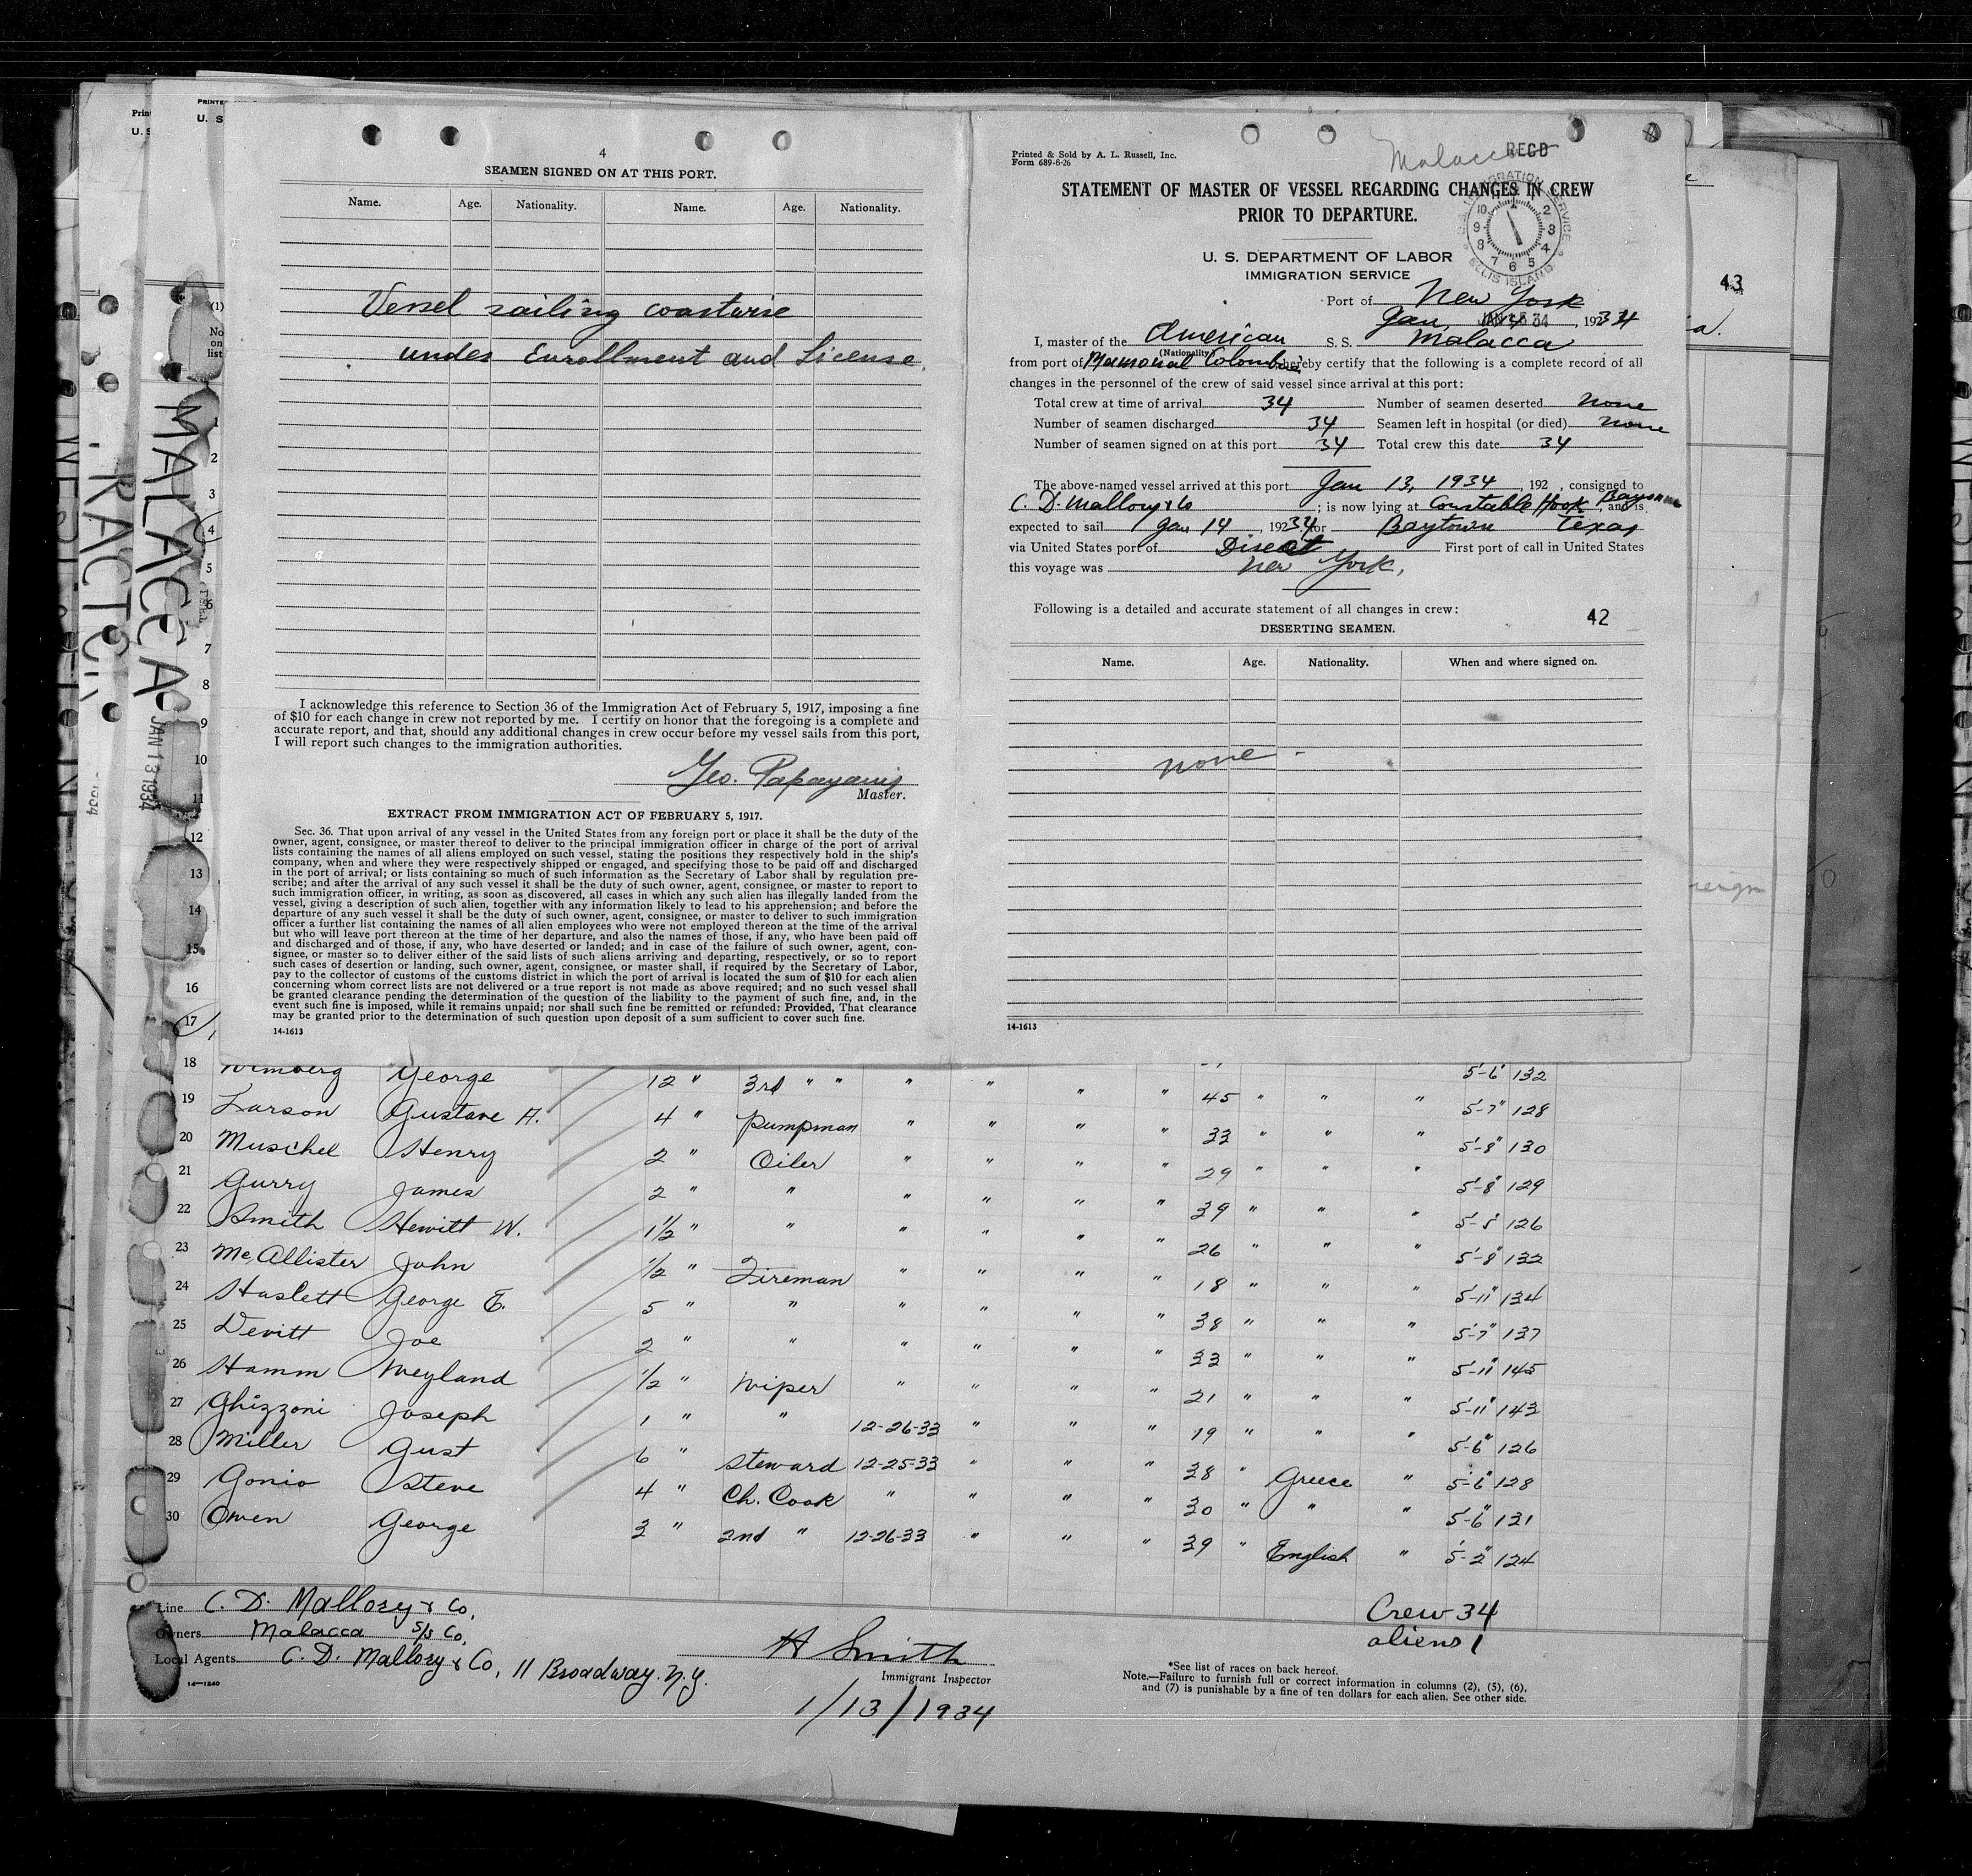 4
SEAMEN SIGNED ON AT THIS PORT.
Name. Age. Nationality. Name. Age. Nationality.
Vessel sailing coastwise
under Enrollment and License.
I acknowledge this reference to Section 36 of the Immigration Act of February 5, 1917, imposing a fine
of $10 for each change in crew not reported by me. I certify on honor that the foregoing is a complete and
accurate report, and that, should any additional changes in crew occur before my vessel sails from this port,
I will report such changes to the immigration authorities.
Geo. Papayanis
Master.
EXTRACT FROM IMMIGRATION ACT OF FEBRUARY 5, 1917.
Sec. 36. That upon arrival of any vessel in the United States from any foreign port or place it shall be the duty of the
owner, agent, consignee, or master thereof to deliver to the principal immigration officer in charge of the port of arrival
lists containing the names of all aliens employed on such vessel, stating the positions they respectively hold in the ship's
company, when and where they were respectively shipped or engaged, and specifying those to be paid off and discharged
in the port of arrival; or lists containing so much of such information as the Secretary of Labor shall by regulation pre-
scribe; and after the arrival of any such vessel it shall be the duty of such owner, agent, consignee, or master to report to
such immigration officer, in writing, as soon as discovered, all cases in which any such alien has illegally landed from the
vessel, giving a description of such alien, together with any information likely to lead to his apprehension; and before the
departure of any such vessel it shall be the duty of such owner, agent, consignee, or master to deliver to such immigration
officer a further list containing the names of all alien employees who were not employed thereon at the time of the arrival
but who will leave port thereon at the time of her departure, and also the names of those, if any, who have been paid off
and discharged and of those, if any, who have deserted or landed; and in case of the failure of such owner, agent, con-
signee, or master so to deliver either of the said lists of such aliens arriving and departing, respectively, or so to report
such cases of desertion or landing, such owner, agent, consignee, or master shall, if required by the Secretary of Labor,
pay to the collector of customs of the customs district in which the port of arrival is located the sum of $10 for each alien
concerning whom correct lists are not delivered or a true report is not made as above required; and no such vessel shall
be granted clearance pending the determination of the question of the liability to the payment of such fine, and, in the
event such fine is imposed, while it remains unpaid; nor shall such fine be remitted or refunded: Provided, That clearance
may be granted prior to the determination of such question upon deposit of a sum sufficient to cover such fine.
14-1613
Printed & Sold by A. L. Russell, Inc.
Form 689-8-26
Malacca
RECD
STATEMENT OF MASTER OF VESSEL REGARDING CHANGES IN CREW
PRIOR TO DEPARTURE.
U. S. DEPARTMENT OF LABOR
IMMIGRATION SERVICE
U.S. IMMIGRATION SERVICE
ELLIS ISLAND
Port of New York
Jan , 192 34
I, master of the American S. S. Malacca
(Nationality)
from port of Mamonal Colombia hereby certify that the following is a complete record of all
changes in the personnel of the crew of said vessel since arrival at this port:
Total crew at time of arrival 34 Number of seamen deserted none
Number of seamen discharged 34 Seamen left in hospital (or died) none
Number of seamen signed on at this port 34 Total crew this date 34
The above-named vessel arrived at this port Jan 13, 1934 , 192 , consigned to
C. D. Mallory & Co ; is now lying at Constable Hook, Bayonne , and is
expected to sail Jan 14 , 192 34 for Baytown Texas
via United States port of Direct First port of call in United States
this voyage was New York.
Following is a detailed and accurate statement of all changes in crew:
42
DESERTING SEAMEN.
Name. Age. Nationality. When and where signed on.
none -
14-1613
43
MALACCA
JAN 13 1934
18 George 12 " 3rd " " " " " " 5'-6" 132
19 Larson Gustave A. 4 " Pumpman " " " " 45 " " " 5'-7" 128
20 Muschel Henry 2 " Oiler " " " " 33 " " " 5'-8" 130
21 Gurry James 2 " " " " " " 29 " " " 5'-8" 129
22 Smith Hewitt W. 1½ " " " " " " 39 " " " 5'-5" 126
23 McAllister John ½ " Fireman " " " " 26 " " " 5'-8" 132
24 Haslett George E. 5 " " " " " " 18 " " " 5'-11" 134
25 Devitt Joe 2 " " " " " " 38 " " " 5'-7" 137
26 Hamm Weyland ½ " Wiper " " " " 33 " " " 5'-11" 145
27 Ghizzoni Joseph 1 " " 12-26-33 " " " 21 " " " 5'-11" 143
28 Miller Gust 6 " Steward 12-25-33 " " " 19 " " " 5'-6" 126
29 Gonio Steve 4 " Ch. Cook " " " " 38 " Greece " 5'-6" 128
30 Owen George 3 " 2nd " 12-26-33 " " " 30 " " " 5'-6" 131
39 " English " 5'-2" 124
Line C. D. Mallory & Co.
Owners Malacca S/S Co.
Local Agents C. D. Mallory & Co, 11 Broadway. N.Y.
14-1240
H Smith
Immigrant Inspector
1/13/1934
Crew 34
aliens 1
*See list of races on back hereof.
Note.—Failure to furnish full or correct information in columns (2), (5), (6),
and (7) is punishable by a fine of ten dollars for each alien. See other side.